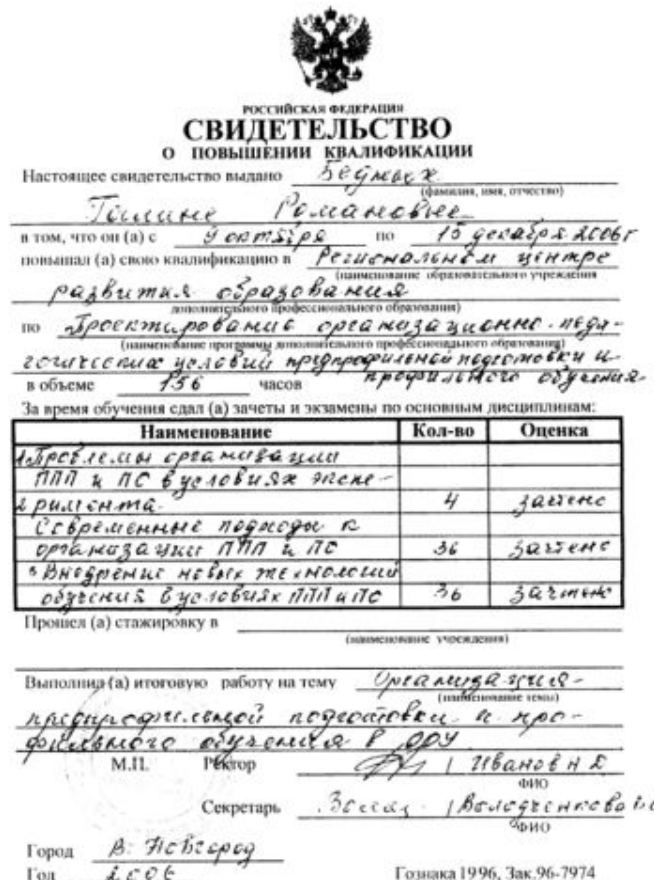 РОССИЙСКАЯ ФЕДЕРАЦИЯ
СВИДЕТЕЛЬСТВО
О ПОВЫШЕНИИ КВАЛИФИКАЦИИ
Настоящее свидетельство выдано Бедных
(фамилия, имя, отчество)
Галине Романовне
в том, что он (а) с 9 октября по 15 декабря 2006г
повышал (а) свою квалификацию в Региональном центре
(наименование образовательного учреждения
развития образования
дополнительного профессионального образования)
по Проектирование организационно-педа-
(наименование программы дополнительного профессионального образования)
гогических условий предпрофильной подготовки и
профильного обучения
в объеме 156 часов
За время обучения сдал (а) зачеты и экзамены по основным дисциплинам:
Наименование Кол-во Оценка
1. Проблемы организации
ППП и ПС в условиях экспе-
2 римента 4 зачтено
Современные подходы к
организации ППП и ПС 36 зачтено
3 Внедрение новых технологий
обучения в условиях ППП и ПС 36 зачтено
Прошел (а) стажировку в
(наименование учреждения)
Выполнил (а) итоговую работу на тему Организация
(наименование темы)
предпрофильной подготовки и про-
фильного обучения в ОУ
М.П. Ректор Иванов Н Д
ФИО
Секретарь Володченкова
ФИО
Город В. Новгород
Год 2006 Гознака 1996, Зак.96-7974